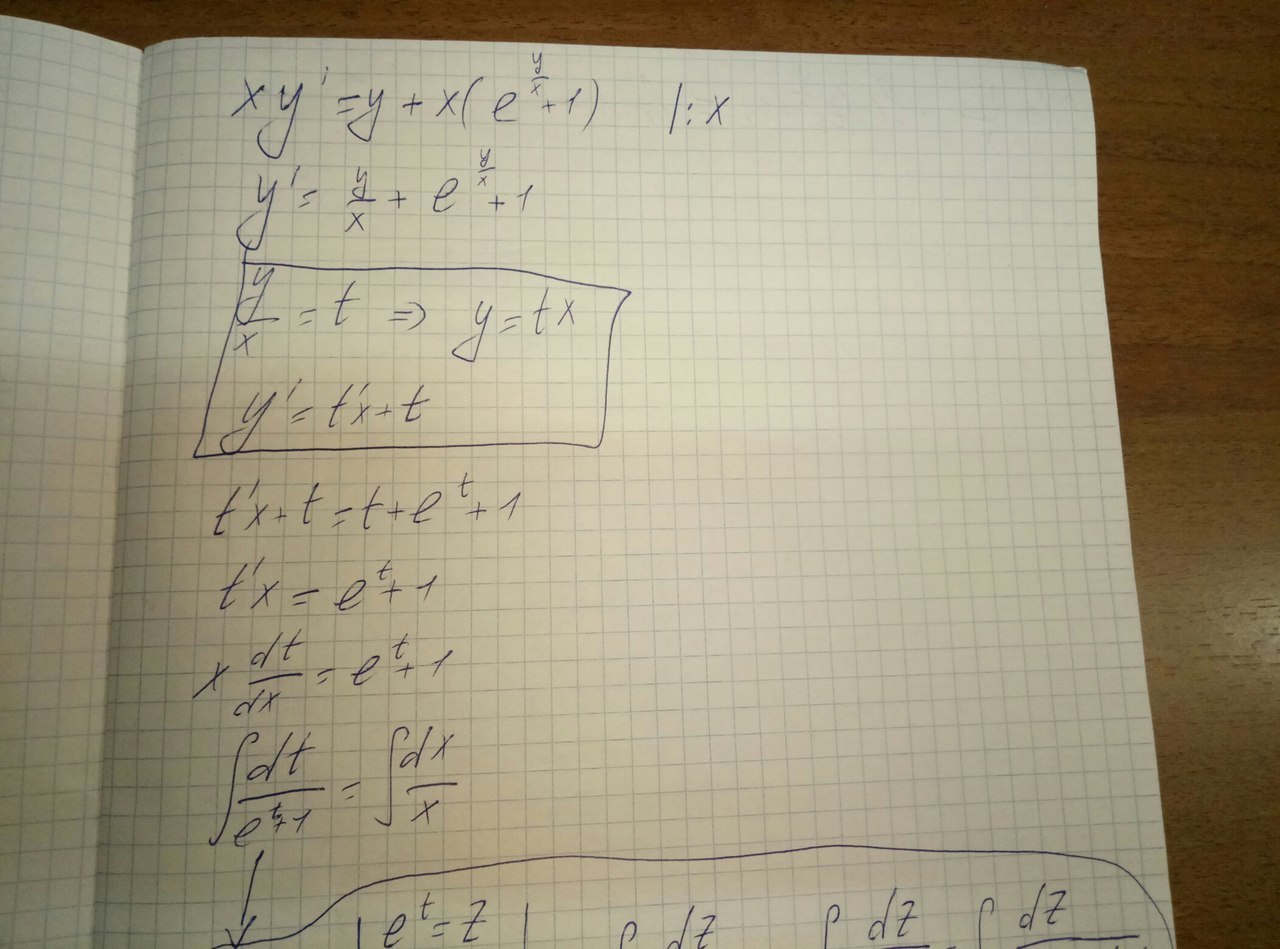 xy' = y + x(e^{y/x} + 1) |: x
y' = y/x + e^{y/x} + 1
y/x = t ⇒ y = tx
y' = t'x + t
t'x + t = t + e^t + 1
t'x = e^t + 1
x dt/dx = e^t + 1
∫ dt/(e^t + 1) = ∫ dx/x
| e^t = z | ∫ dz ∫ dz = ∫ dz